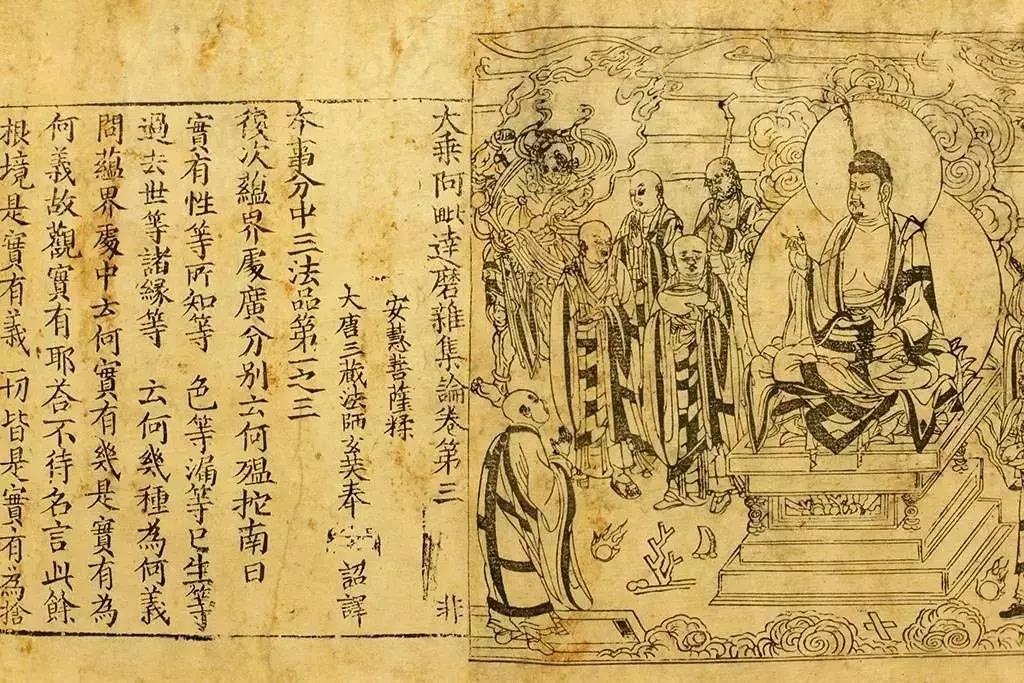 大乗阿毗達磨雜集論卷第三 非
安慧菩薩糅
大唐三藏法師玄奘奉 詔譯
本事分中三法品第一之三
復次蘊界處廣分別云何嗢柁南曰
實有性等所知等 色等漏等已生等
過去世等諸緣等 云何幾種為何義
問蘊界處中云何實有幾是實有為
何義故觀實有耶荅不待名言此餘
根境是實有義一切皆是實有為捨